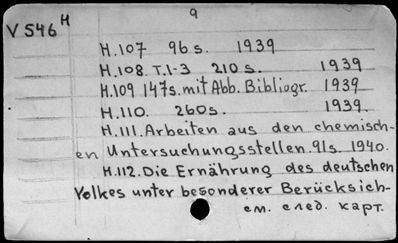 9
V 546 H
H.107 96 s. 1939
H.108. T.1-3 210 s. 1939
H.109 147s. mit Abb. Bibliogr. 1939
H.110. 260s. 1939.
H.111. Arbeiten aus den chemisch-
en Untersuchungsstellen. 91s. 1940.
H.112. Die Ernährung des deutschen
Volkes unter besonderer Berücksich-
см. след. карт.